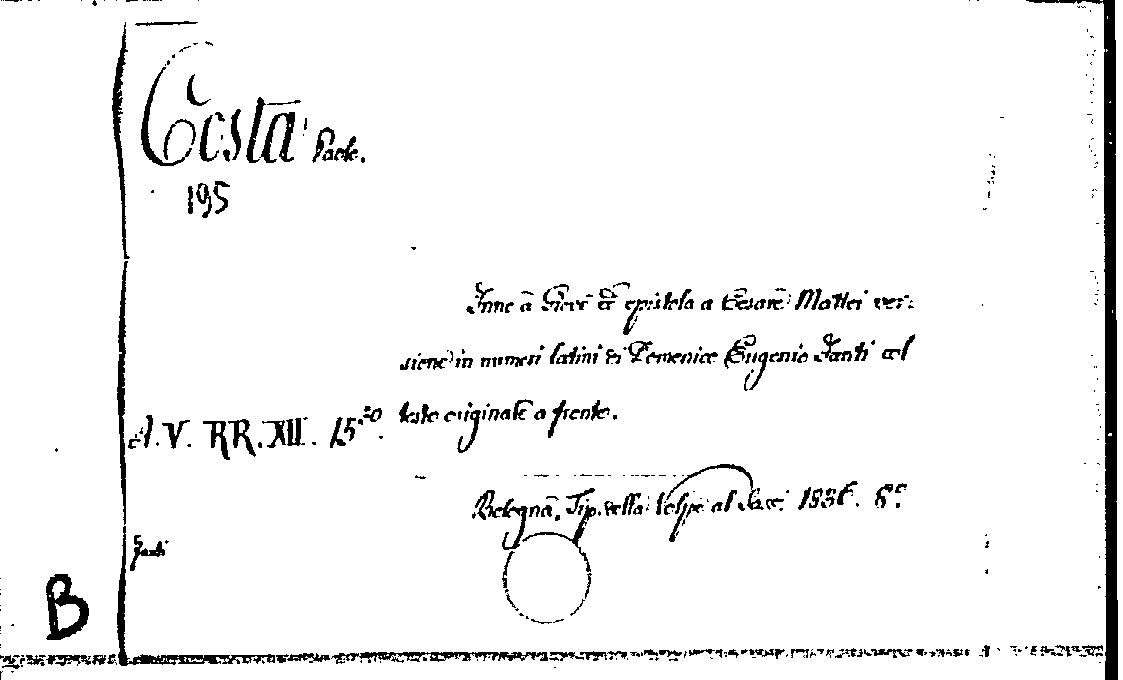 Costa Paolo.
195
Inno a Giove ed epistola a Cesare Mattei ver-
sione in numeri latini di Domenico Eugenio Fanti col
testo originale a fronte.
A.V. RR. XII. 15.
Bologna, Tip. della Volpe al Sassi 1836. 8.°
Fanti
B